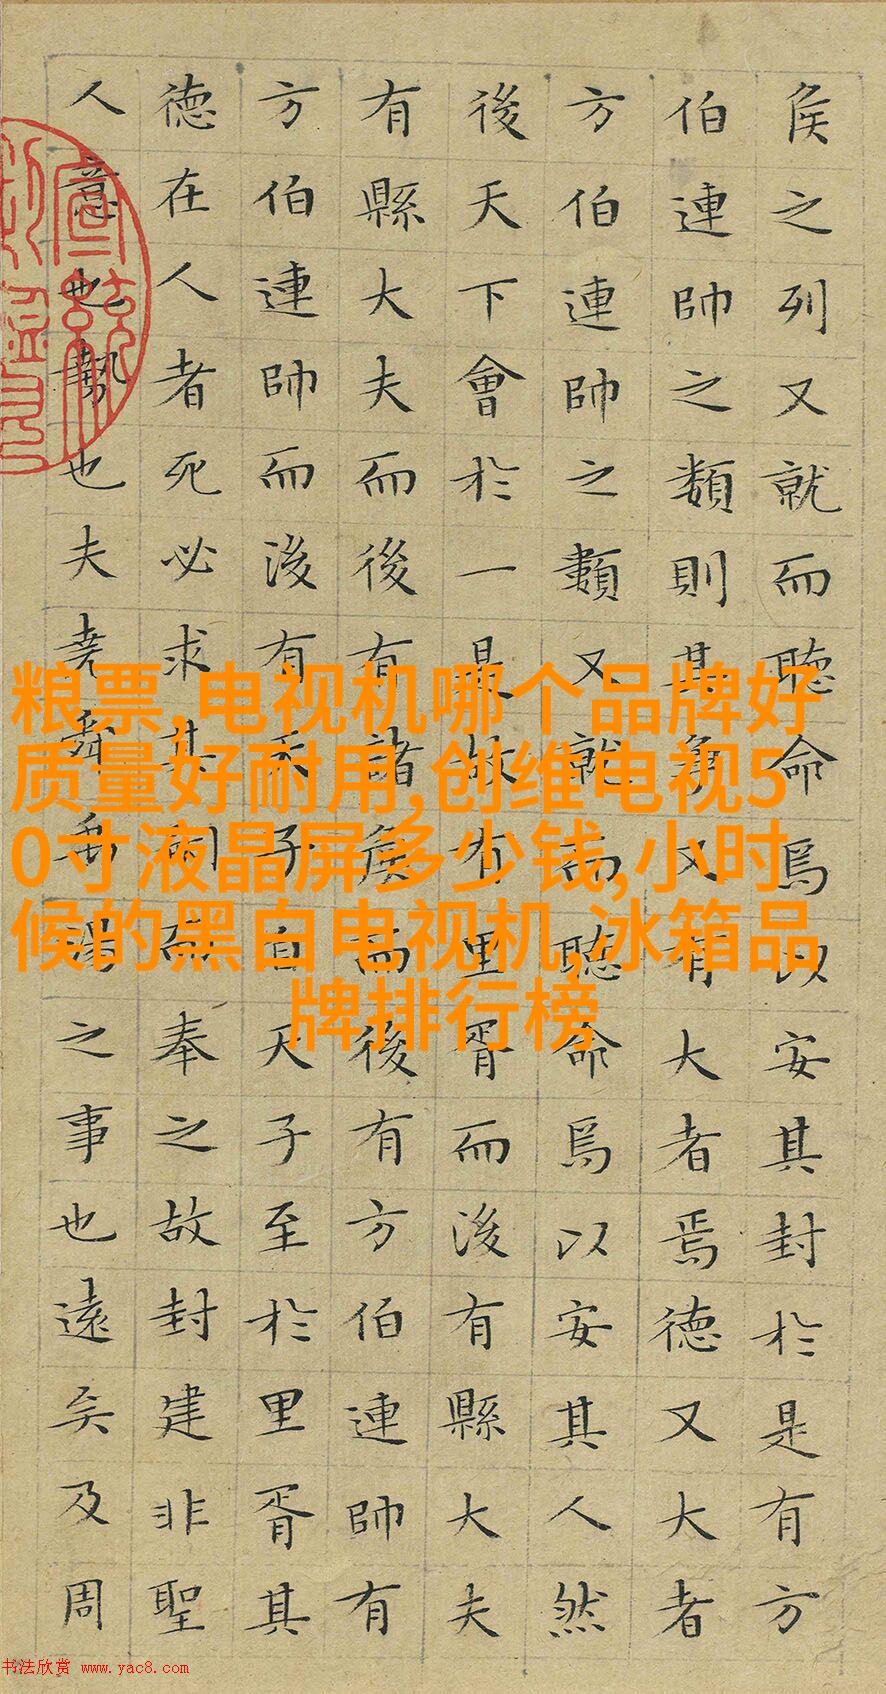 侯之列又就而聽命焉以安其封於是有方
伯連帥之類則其爭又有大者焉德又大者
方伯連帥之類又就而聽命焉以安其人然
後天下會於一是故有里胥而後有縣大夫
有縣大夫而後有諸侯而後有方伯連帥有
方伯連帥而後有天子自天子至於里胥其
德在人者死必求其嗣而奉之故封建非聖
人意也勢也夫堯舜禹湯之事也遠矣及周
粮票,电视机哪个品牌好
质量好耐用,创维电视5
0寸液晶屏多少钱,小时
候的黑白电视机,冰箱品
牌排行榜
书法欣赏 www.yac8.com